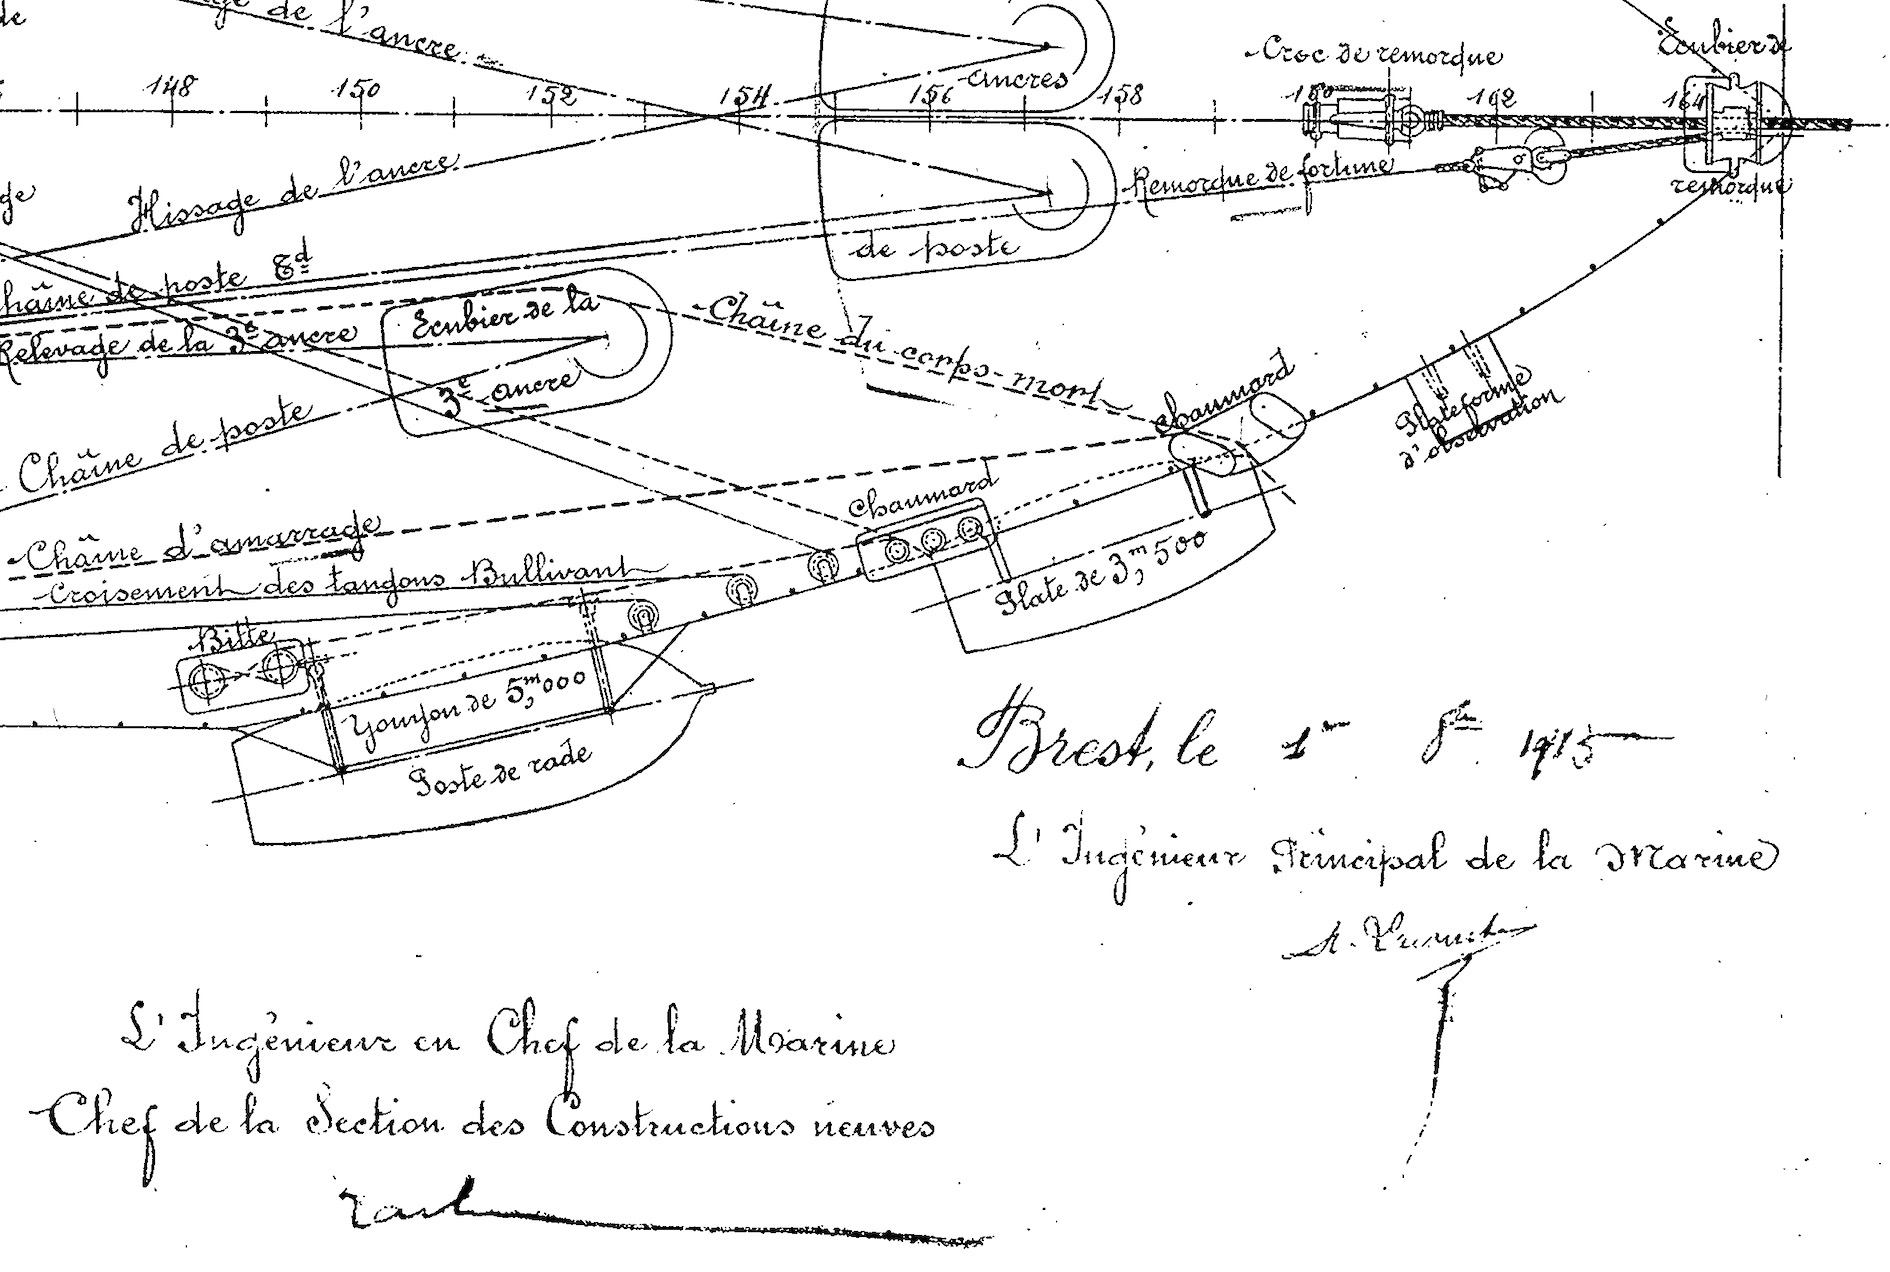 de
ge de l'ancre
148 150 152 154 156 158 160 162 164
ancres
Croc de remorque
Écubier de
remorque
Hissage de l'ancre
ge
Remorque de fortune
de poste
haîne de poste Bd
Écubier de la
3e ancre
Relevage de la 3e ancre
Chaîne du corps-mort
Chaîne de poste
Chaumard
Plateforme
d'observation
Chaumard
Chaîne d'amarrage
Croisement des tangons Bullivant
Plate de 3m,500
Bitte
Youyou de 5m,000
Poste de rade
Brest, le 1er 8bre 1915
L'Ingénieur Principal de la Marine
L'Ingénieur en Chef de la Marine
Chef de la Section des Constructions neuves